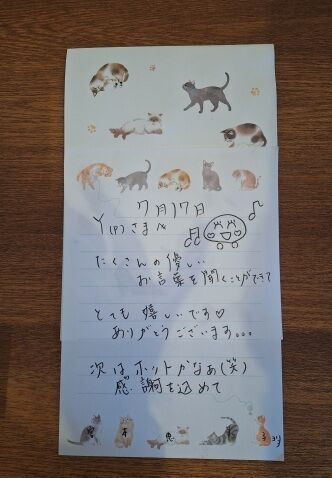 7月17日
Y(P)さまへ
たくさんの優しい
お言葉を聞くことができて
とても嬉しいです♡
ありがとうございます...
次はホットかなぁ(笑)
感謝を込めて
より